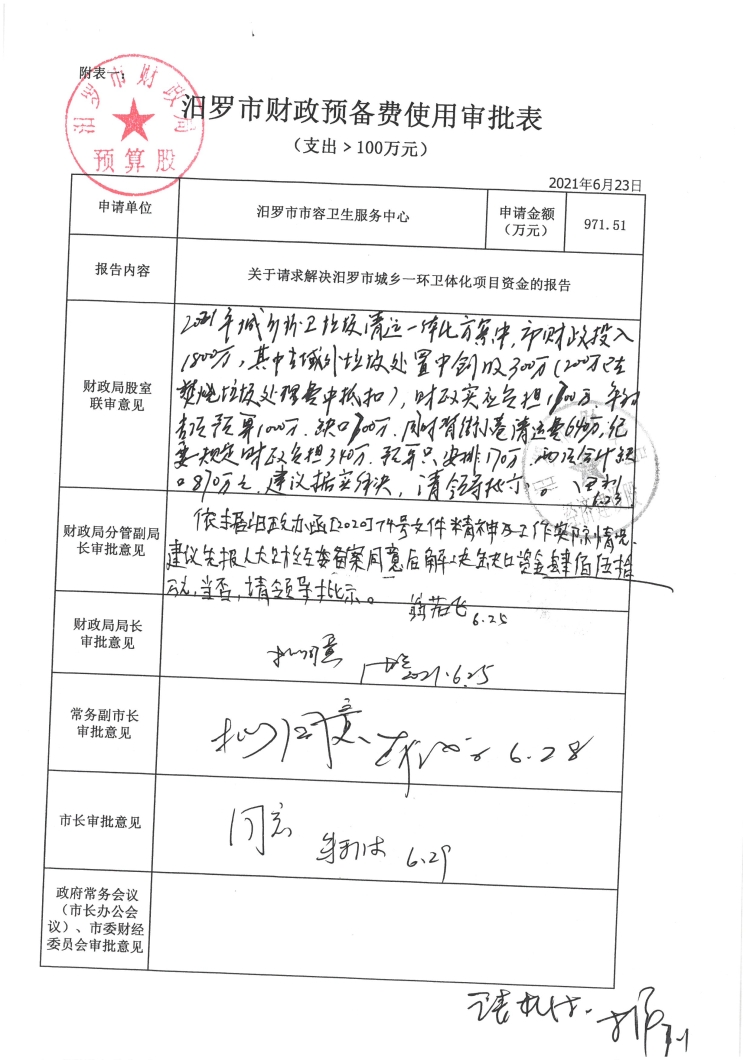 附表一:
汨罗市财政局
预算股
汨罗市财政预备费使用审批表
（支出＞100万元）
2021年6月23日
申请单位
汨罗市市容卫生服务中心
申请金额
（万元）
971.51
报告内容
关于请求解决汨罗市城乡一环卫体化项目资金的报告
财政局股室
联审意见
2021年城乡环卫垃圾清运一体化方案中,市财政投入
1800万,其中 城外垃圾处置中 300万(200万已在
焚烧垃圾处理费中抵扣),财政实应负担 万 年初
预算1000万.缺口 万.同时背街小巷清运费640万,纪
要规定财政负担340万.预算只安排170万,两项合计缺
口870万元,建议据实解决,请领导批示。
6.23
财政局分管副局
长审批意见
依据汨政办函[2020]74号文件精神及工作实际情况,
建议先报人大财经委备案同意后解决缺口资金肆佰伍拾
万元,当否,请领导批示。
6.25
财政局局长
审批意见
拟同意
2021.6.25
常务副市长
审批意见
拟同意、
6.28
市长审批意见
同意
6.29
政府常务会议
（市长办公会
议）、市委财经
委员会审批意见